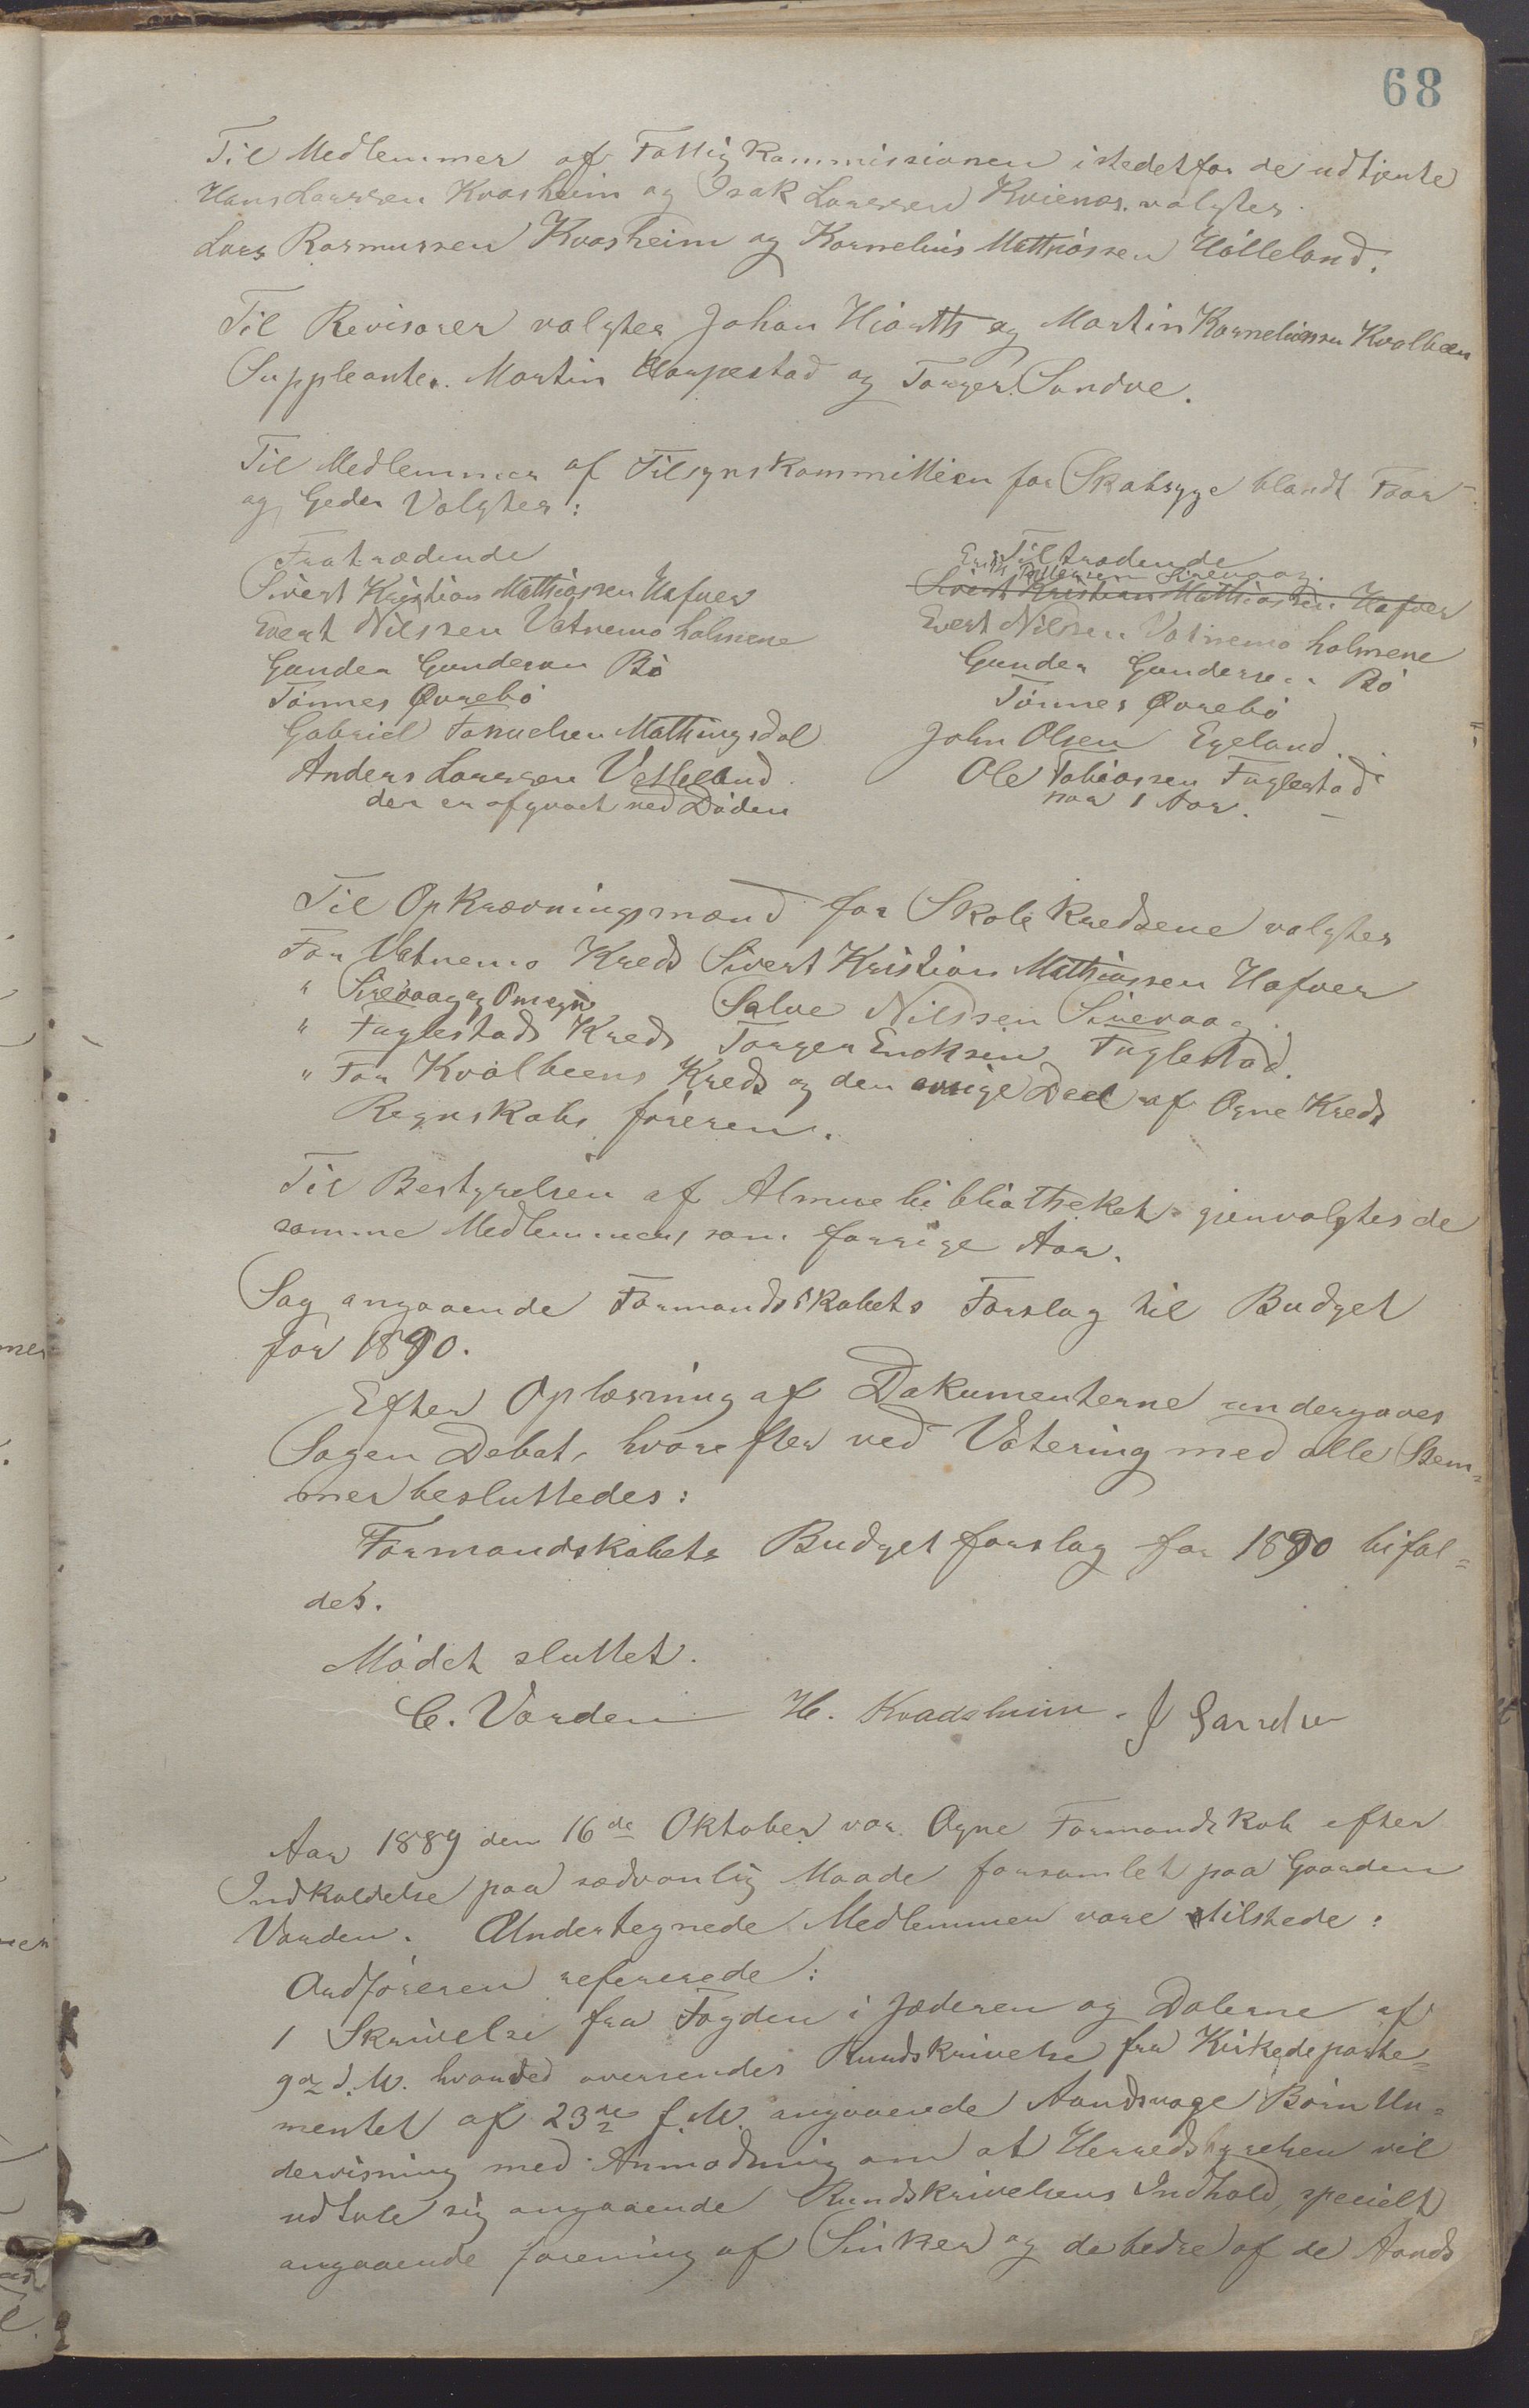 68
Til Medlemmer af Fattigkommissionen istedetfor de udtjente
Hans Larssen Kvasheim og Isak Larssen Kvienes valgtes
Lars Rasmussen Kvasheim og Kornelius Mathiassen Hölleland.
Til Revisorer valgtes Johan Hiorth og Martin Korneliussen Kvalbein
Suppleanter. Martin Harpestad og Torger Sandve.
Til Medlemmer af Tilsynskommitteen for Skabsyge blandt Faar
og Geder Valgtes:
Fratrædende
Sivert Kristian Mathiassen Hafver
Evert Nilssen Vatnemo holmene
Gunder Gunderson Bö
Tönnes Øvrebö
Gabriel Tanuelsen Mathingsdal
Anders Larssen Vetteland
der er afgaaet ved Döden
Tiltrædende
Sirevaag.
Sivert Kristian Mathiassen Hafver
Evert Nilssen Vatnemo holmene
Gunder Gundersen Bö
Tönnes Øvrebö
John Olsen Egeland.
Ole Tobiassen Fuglestad
paa 1 Aar.
Til Opkrævningsmænd for Skolekredsene valgtes
For Vatnemo Kreds Sivert Kristian Mathiassen Hafver
" Sirevaag og Omegn Salve Nilssen Sirevaag.
" Fuglestads Kreds Torger Enoksen Fuglestad.
" For Kvalbeens Kreds og den övrige Deel af Ogne Kreds
Regnskabs föreren.
Til Bestyrelsen af Almuebibliotheket gjenvalgtes de
samme Medlemmer som forrige Aar.
Sag angaaende Formandskabets Forslag til Budget
for 1890.
Efter Oplæsning af Dokumenterne undergaves
Sagen Debat, hvorefter ved Votering med alle Stem=
mer besluttedes:
Formandskabets Budgetforslag for 1890 bifal=
des.
Mödet sluttet.
C. Varden H. Kvadsheim. J Sandve
Aar 1889 den 16de Oktober var Ogne Formandskab efter
Indkaldelse paa sædvanlig Maade forsamlet paa Gaarden
Varden. Undertegnede Medlemmer vare tilstede:
Ordföreren refererede:
1 Skrivelse fra Fogden i Jæderen og Dalerne af
9de d.M. hvorved oversendes Rundskrivelse fra Kirkedeparte=
mentet af 23de f.M. angaaende Aandsvage Börn Un=
dervisning med Anmodning om at Herredstyrelsen vil
udtale sig angaaende Rundskrivelsens Indhold, specielt
angaaende forening af Sinker og de bedre af de Aands